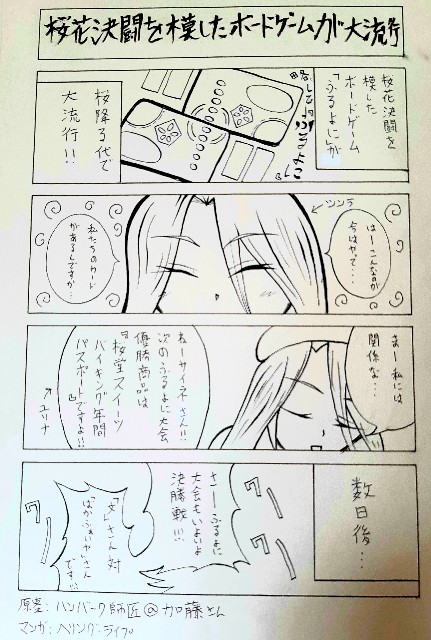 桜花決闘を模したボードゲームが大流行
桜花決闘を
模した
ボードゲーム
「ふるよに」が
ふるよに
桜降る代で
大流行!!
ツンデ
はーこんなのが
今はやって…
私たちのカード
があるんですか…
まー私には
関係な…
ねーサイネさん!!
次のふるよに大会
優勝商品は
『桜堂スイーツ
バイキング年間
パスポート』ですよ!!
↑ユリナ
数日後…
さーふるよに
大会もいよいよ
決勝戦!!!
ワー
ワー
さん対
さん
です!!
原案:ハンバーク師匠@加藤さん
マンガ:ヘリング・ライプ